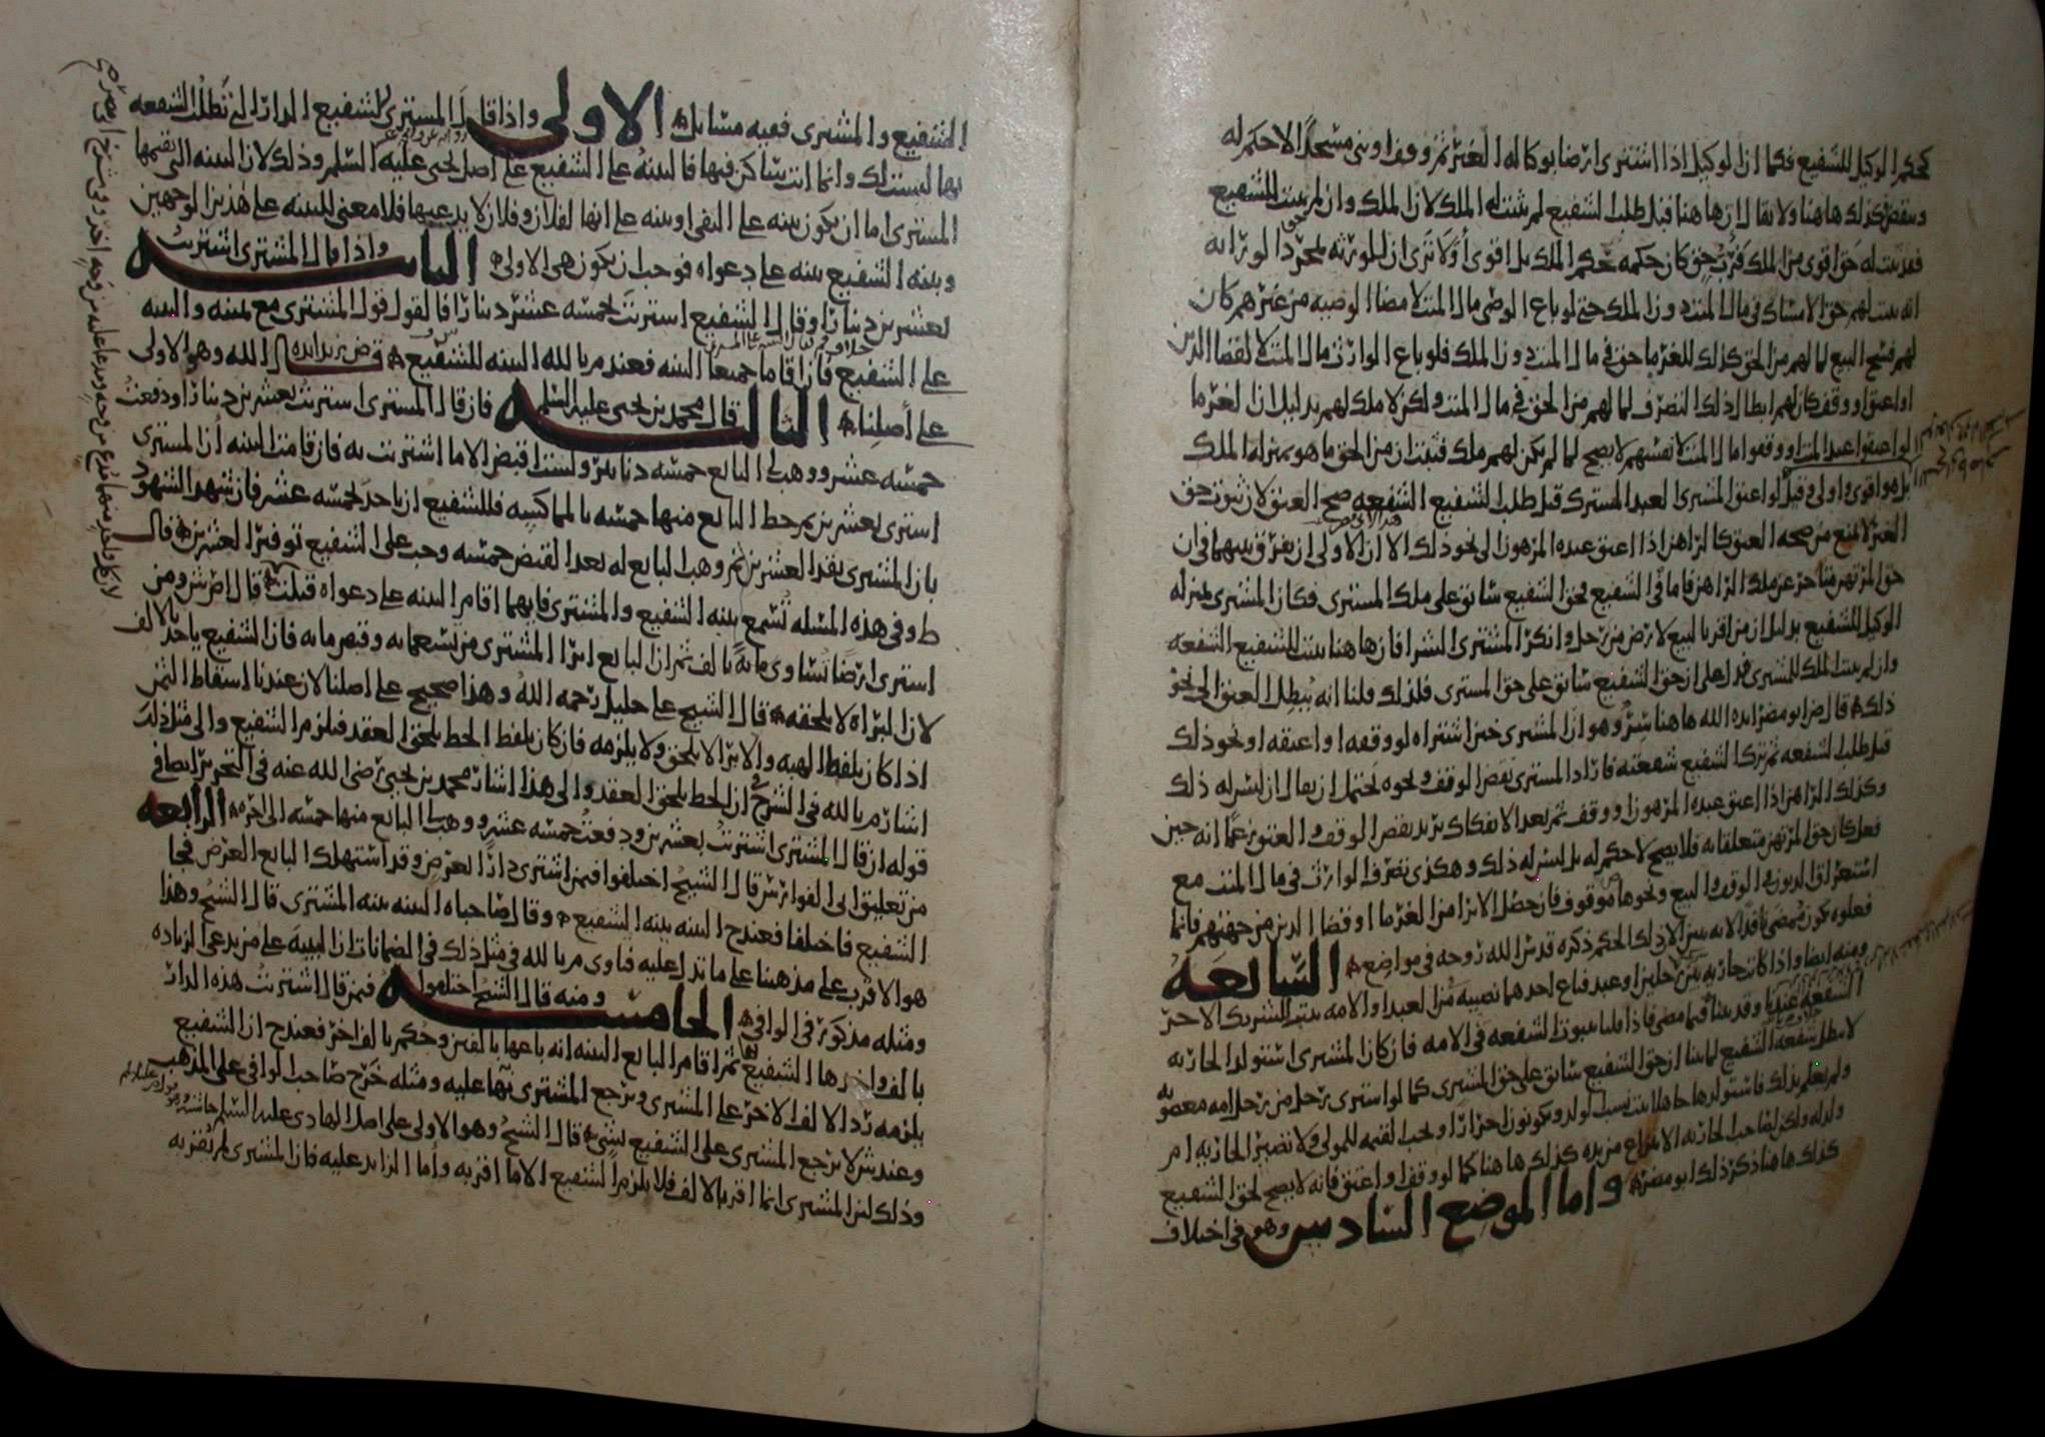 كحكم الوكيل للشفيع فكما ان الوكيل اذا اشترى ارضا بوكالة الغير ثم وقف او بنى مسجدًا لا حكم له
وينقض كذلك هاهنا ولا يقال ان هاهنا قبل طلب الشفيع لم يثبت له الملك لان الملك وان لم يثبت للشفيع
فقد ثبت له حق اقوى من الملك فرب حق كان حكمه حكم الملك بل اقوى أولا ترى ان للورثة بمجرد الوراثة
انه يثبت لهم حق الامساك في مال الميت دون الملك حتى لو باع الوصي مال الميت لامضا الوصية من غيرهم كان
لهم فسخ البيع لما لهم من الحق كذلك للغرما حق في مال الميت دون الملك فلو باع الوارث مال الميت لا لقضا الدين
او اعتق او وقف كان لهم ابطال ذلك التصرف لما لهم من الحق في مال الميت ولكن لا ملك لهم بدليل ان الغرما
لو اعتقوا عبد الميت او وقفوا مال الميت لانفسهم لا يصح لما لم يكن لهم ملك فثبت ان من الحق ما هو بمنزلة الملك
بل هو اقوى واولى وقيل لو اعتق المشترى العبد المشترك قبل طلب الشفيع الشفعه صح العتق لان ثبوت حق
الغير لا يمنع من صحة العتق كالراهن اذا اعتق عبده المرهون الى نحو ذلك الا ان الاولى ان يفرق بينهما فى ان
حق المرتهن متاخر عن ملك الراهن فاما في الشفيع فحق الشفيع سابق على ملك المشترى فكان المشترى بمنزلة
الوكيل للشفيع بدليل ان من اقر بالبيع لارض من رجل وانكر المشترى الشرا فان هاهنا يثبت للشفيع الشفعه
وان لم يثبت الملك للمشترى فدل على ان حق الشفيع سابق على حق المشترى فلذلك قلنا انه يبطل العتق الى نحو
ذلك قال ض ابو مضر ايده الله هاهنا سر وهو ان المشترى حين اشتراه لو وقفه او اعتقه او نحو ذلك
قبل طلب الشفعه ثم ترك الشفيع شفعته فاراد المشترى نقض الوقف ونحوه يحتمل ان يقال ان ليس له ذلك
وكذلك الراهن اذا اعتق عبده المرهون او وقف ثم بعد الانفكاك يريد نقض الوقف والعتق زعمًا انه حين
فعل كان حق المرتهن متعلقا به فلا يصح لا حكم له بل ليس له ذلك وهكذى تصرف الوارث فى مال الميت مع
استغراق الديون في الوقف والبيع ونحوها موقوف فان حصل الابرا من الغرما او قضا الدين من جهتهم فانما
فعلوه يكون ممضى نافذًا لا انه ليس لذلك الحكم ذكره قدس الله روحه في مواضع السابعة
ومنه ايضا واذا كانت جاريه بين رجلين او عبد فباع احدهما نصيبه من العبد او الامه يثبت للشريك الاخر
الشفعه عندنا وقد بينا فيما مضى فاذا قلنا بثبوت الشفعه في الامه فان كان المشترى استولد الجاريه
لا يبطل شفعه الشفيع لما بينا ان حق الشفيع سابق على حق المشترى كما لو اشترى رجل من رجل امه مغصوبه
ولم يعلم بذلك فاستولدها جاهلا يثبت نسب الولد ويكونون احرارا ويجب القيمه للمولى ولا تصير الجاريه ام
ولد له ولكن لصاحب الجاريه الانتزاع من يده كذلك هاهنا كما لو وقف او اعتق فانه لا يصح لحق الشفيع
كذلك هاهنا ذكر ذلك ابو مضر واما الموضع السادس وهو فى اختلاف
الشفيع والمشترى ففيه مسايل الاولى واذا قال المشترى للشفيع الدار التي تطلب الشفعه
بها ليست لك وانما انت ساكن فيها فالبينة على الشفيع على اصل يحيى عليه السلم وذلك لان البينه التي يقيمها
المشترى اما ان يكون بينه على النفى او بينه على انها لفلان وفلان لا يدعيها فلا معنى للبينه على هذين الوجهين
وبينه الشفيع بينه على دعواه فوجب ان يكون هي الاولى الثانيه واذا قال المشترى اشتريت
بعشرين دينارا وقال الشفيع اشتريت بخمسه عشر دينارا فالقول قول المشترى مع يمينه والبينه
على الشفيع فان اقاما جميعا البينه فعند م بالله البينه للشفيع ض زيد ايده الله وهو الاولى
على أصلنا الثالثه قال محمد بن يحيى عليه السلم فان قال المشترى اشتريت بعشرين دينارا ودفعت
خمسه عشر ووهب لى البايع خمسه دنانير ولست اقبض الا ما اشتريت به فان قامت البينه أن المشترى
اشترى بعشرين ثم حط البايع منها خمسه بالمماكسه فللشفيع ان ياخذ بخمسه عشر فان شهد الشهود
بان المشترى نقد العشرين ثم وهب البايع له بعد القبض خمسه وجب على الشفيع توفير العشرين قال
ط وفي هذه المسله تسمع بينه الشفيع والمشترى فايهما اقام البينه على دعواه قبلت قال ض ش ومن
اشترى ارضًا تساوى مايةً بالف ثم ان البايع ابرا المشترى من تسعمايه وقبض مايه فان الشفيع ياخذ بالالف
لان البراه لا تلحقه قال الشيخ على خليل رحمه الله وهذا صحيح على اصلنا لان عندنا اسقاط الثمن
اذا كان بلفظ الهبه والابرا لا يلحق ولا يلزمه فان كان بلفظ الحط يلحق العقد فيلزم الشفيع والى مثل ذلك
اشار م بالله في الشرح ان الحط يلحق العقد والى هذا اشار محمد بن يحيى رضي الله عنه فى التحرير ايضا فى
قوله ان قال المشترى اشتريت بعشرين ودفعت خمسه عشر ووهب لى البايع منها خمسه الى اخره الرابعه
من تعليق ابى الفوارس قال الشيخ اختلفوا فيمن اشترى دارًا بعرض وقد استهلك البايع العرض فجا
الشفيع فاختلفا فعند ح البينه بينه الشفيع وقال صاحباه البينه بينه المشترى قال الشيخ وهذا
هو الاقرب على مذهبنا على ما تدل عليه فتاوى م بالله في مثل ذلك فى الضمانات ان البينه على من يدعى الزياده
ومثله مذكور فى الوافى الخامسه ومنه قال الشيخ اختلفوا فيمن قال اشتريت هذه الدار
بالف واخذها الشفيع بها ثم اقام البايع البينه انه باعها بالفين وحكم بالف اخر فعند ح ان الشفيع
يلزمه رد الالف الاخر على المشترى ويرجع المشترى بها عليه ومثله خرج صاحب الوافى على المذهب
وعند ش لا يرجع المشترى على الشفيع بشي قال الشيخ وهو الاولى على اصل الهادى عليه السلم حاشيه
وذلك لان المشترى انما اقر بالالف فلا يلزم الشفيع الا ما اقر به وأما الزايد عليه فان المشترى لم يقر به